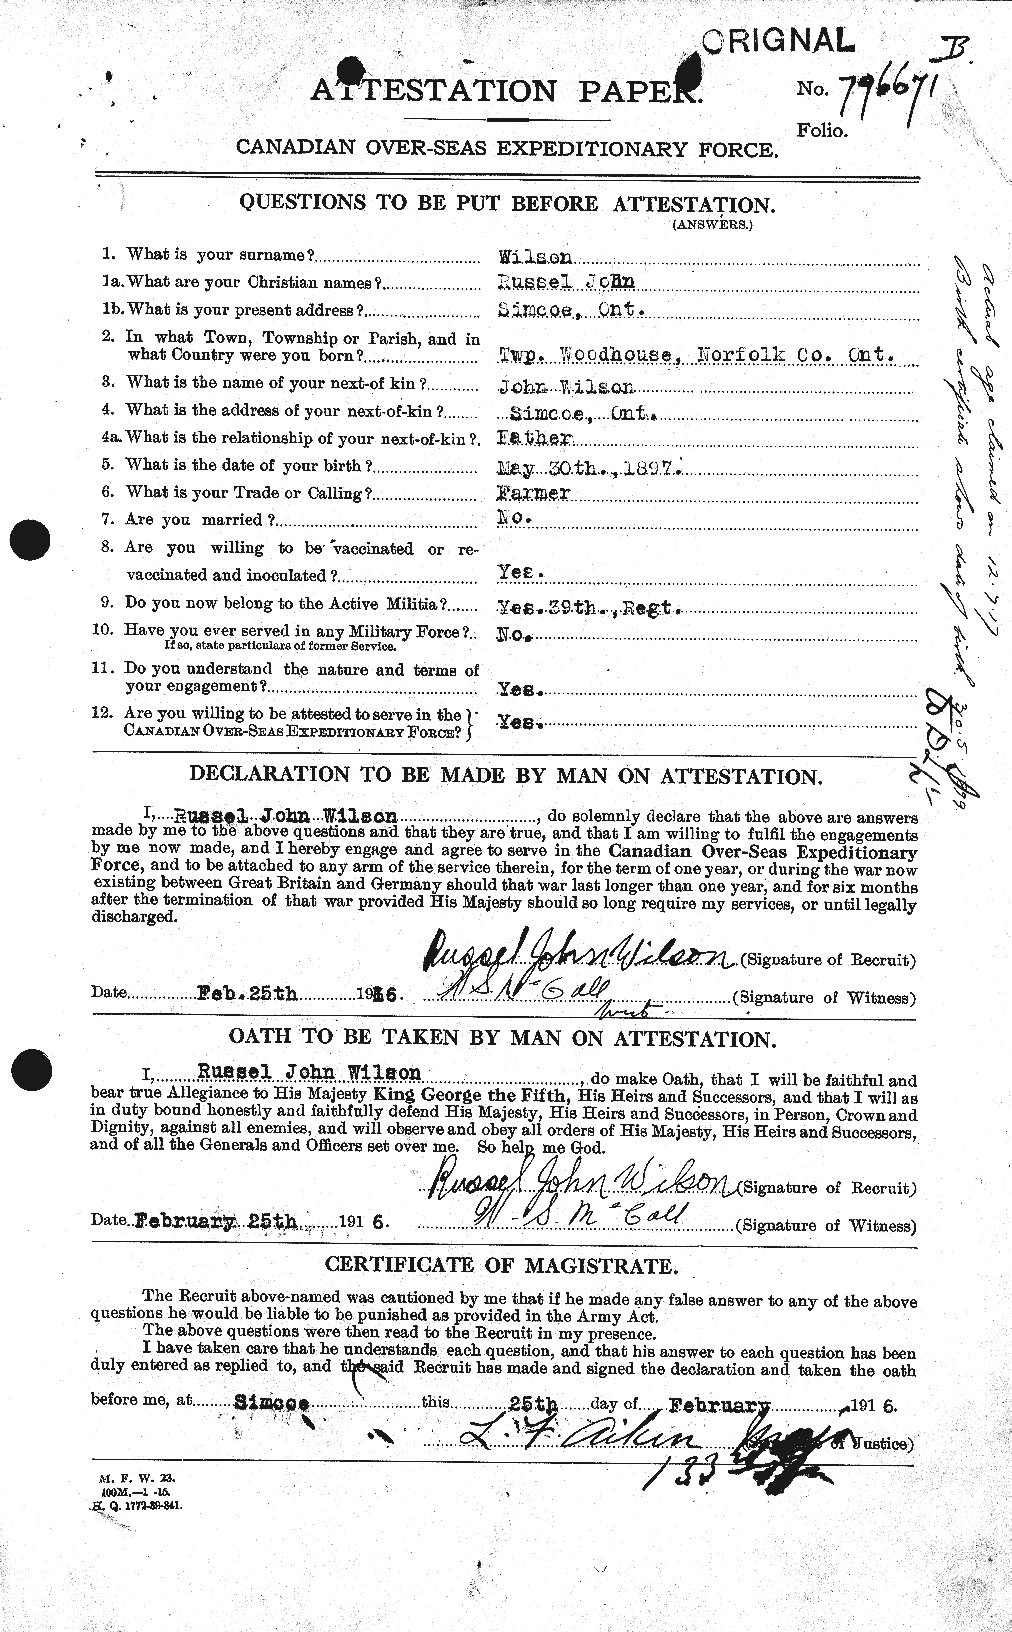 ORIGNAL
B.
ATTESTATION PAPER.
No. 796671
Folio.
CANADIAN OVER-SEAS EXPEDITIONARY FORCE.
QUESTIONS TO BE PUT BEFORE ATTESTATION.
(ANSWERS.)
1. What is your surname? Wilson
1a. What are your Christian names? Russel John
1b. What is your present address? Simcoe, Ont.
2. In what Town, Township or Parish, and in
what Country were you born? Twp. Woodhouse, Norfolk Co. Ont.
3. What is the name of your next-of kin? John Wilson
4. What is the address of your next-of-kin? Simcoe, Ont.
4a. What is the relationship of your next-of-kin? Father
5. What is the date of your birth? May 30th., 1897.
6. What is your Trade or Calling? Farmer
7. Are you married? No.
8. Are you willing to be vaccinated or re-
vaccinated and inoculated? Yes.
9. Do you now belong to the Active Militia? Yes. 39th., Regt.
10. Have you ever served in any Military Force? No.
If so, state particulars of former Service.
11. Do you understand the nature and terms of
your engagement? Yes.
12. Are you willing to be attested to serve in the
CANADIAN OVER-SEAS EXPEDITIONARY FORCE? Yes.
Actual age claimed on 12.7.17
Birth certificate shows date of birth 30.5.99
DECLARATION TO BE MADE BY MAN ON ATTESTATION.
I, Russel John Wilson, do solemnly declare that the above are answers
made by me to the above questions and that they are true, and that I am willing to fulfil the engagements
by me now made, and I hereby engage and agree to serve in the Canadian Over-Seas Expeditionary
Force, and to be attached to any arm of the service therein, for the term of one year, or during the war now
existing between Great Britain and Germany should that war last longer than one year, and for six months
after the termination of that war provided His Majesty should so long require my services, or until legally
discharged.
Russel John Wilson (Signature of Recruit)
Date Feb. 25th 1916. W S McCall (Signature of Witness)
OATH TO BE TAKEN BY MAN ON ATTESTATION.
I, Russel John Wilson, do make Oath, that I will be faithful and
bear true Allegiance to His Majesty King George the Fifth, His Heirs and Successors, and that I will as
in duty bound honestly and faithfully defend His Majesty, His Heirs and Successors, in Person, Crown and
Dignity, against all enemies, and will observe and obey all orders of His Majesty, His Heirs and Successors,
and of all the Generals and Officers set over me. So help me God.
Russel John Wilson (Signature of Recruit)
Date February 25th 1916. W. S. McCall (Signature of Witness)
CERTIFICATE OF MAGISTRATE.
The Recruit above-named was cautioned by me that if he made any false answer to any of the above
questions he would be liable to be punished as provided in the Army Act.
The above questions were then read to the Recruit in my presence.
I have taken care that he understands each question, and that his answer to each question has been
duly entered as replied to, and the said Recruit has made and signed the declaration and taken the oath
before me, at Simcoe this 25th day of February 1916.
L. F. Aiken of Justice)
133
M. F. W. 23.
400M.—1-15.
H. Q. 1772-39-841.